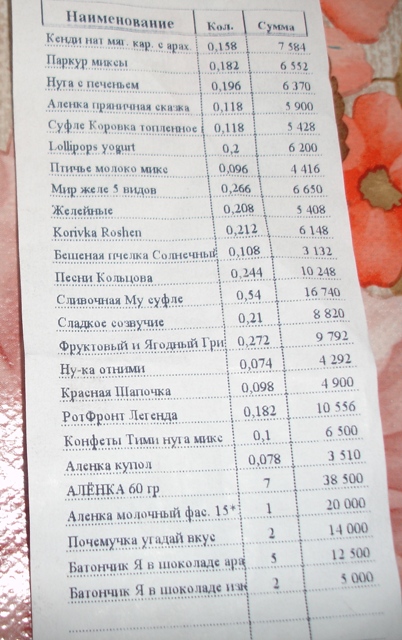 Наименование Кол. Сумма
Кенди нат мяг. кар. с арах. 0,158 7 584
Паркур миксы 0,182 6 552
Нуга с печеньем 0,196 6 370
Аленка пряничная сказка 0,118 5 900
Суфле Коровка топленное 0,118 5 428
Lollipops yogurt 0,2 6 200
Птичье молоко микс 0,096 4 416
Мир желе 5 видов 0,266 6 650
Желейные 0,208 5 408
Korivka Roshen 0,212 6 148
Бешеная пчелка Солнечный 0,108 3 132
Песни Кольцова 0,244 10 248
Сливочная Му суфле 0,54 16 740
Сладкое созвучие 0,21 8 820
Фруктовый и Ягодный Гри 0,272 9 792
Ну-ка отними 0,074 4 292
Красная Шапочка 0,098 4 900
РотФронт Легенда 0,182 10 556
Конфеты Тими нуга микс 0,1 6 500
Аленка купол 0,078 3 510
АЛЁНКА 60 гр 7 38 500
Аленка молочный фас. 15* 1 20 000
Почемучка угадай вкус 2 14 000
Батончик Я в шоколаде ара 5 12 500
Батончик Я в шоколаде изю 2 5 000